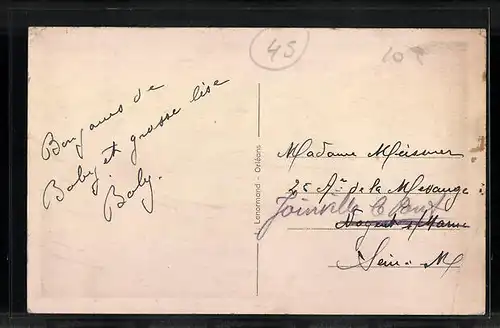 45
Bonjours de
Baby et grosse bise
Baby.
Lenormand - Orléans
Madame Meisner
25 Av. de la Mesange
Joinville le Pont
Nogent s/Marne
Seine-M